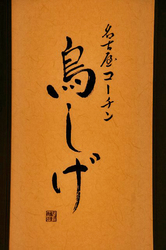 名古屋コーチン
鳥しげ